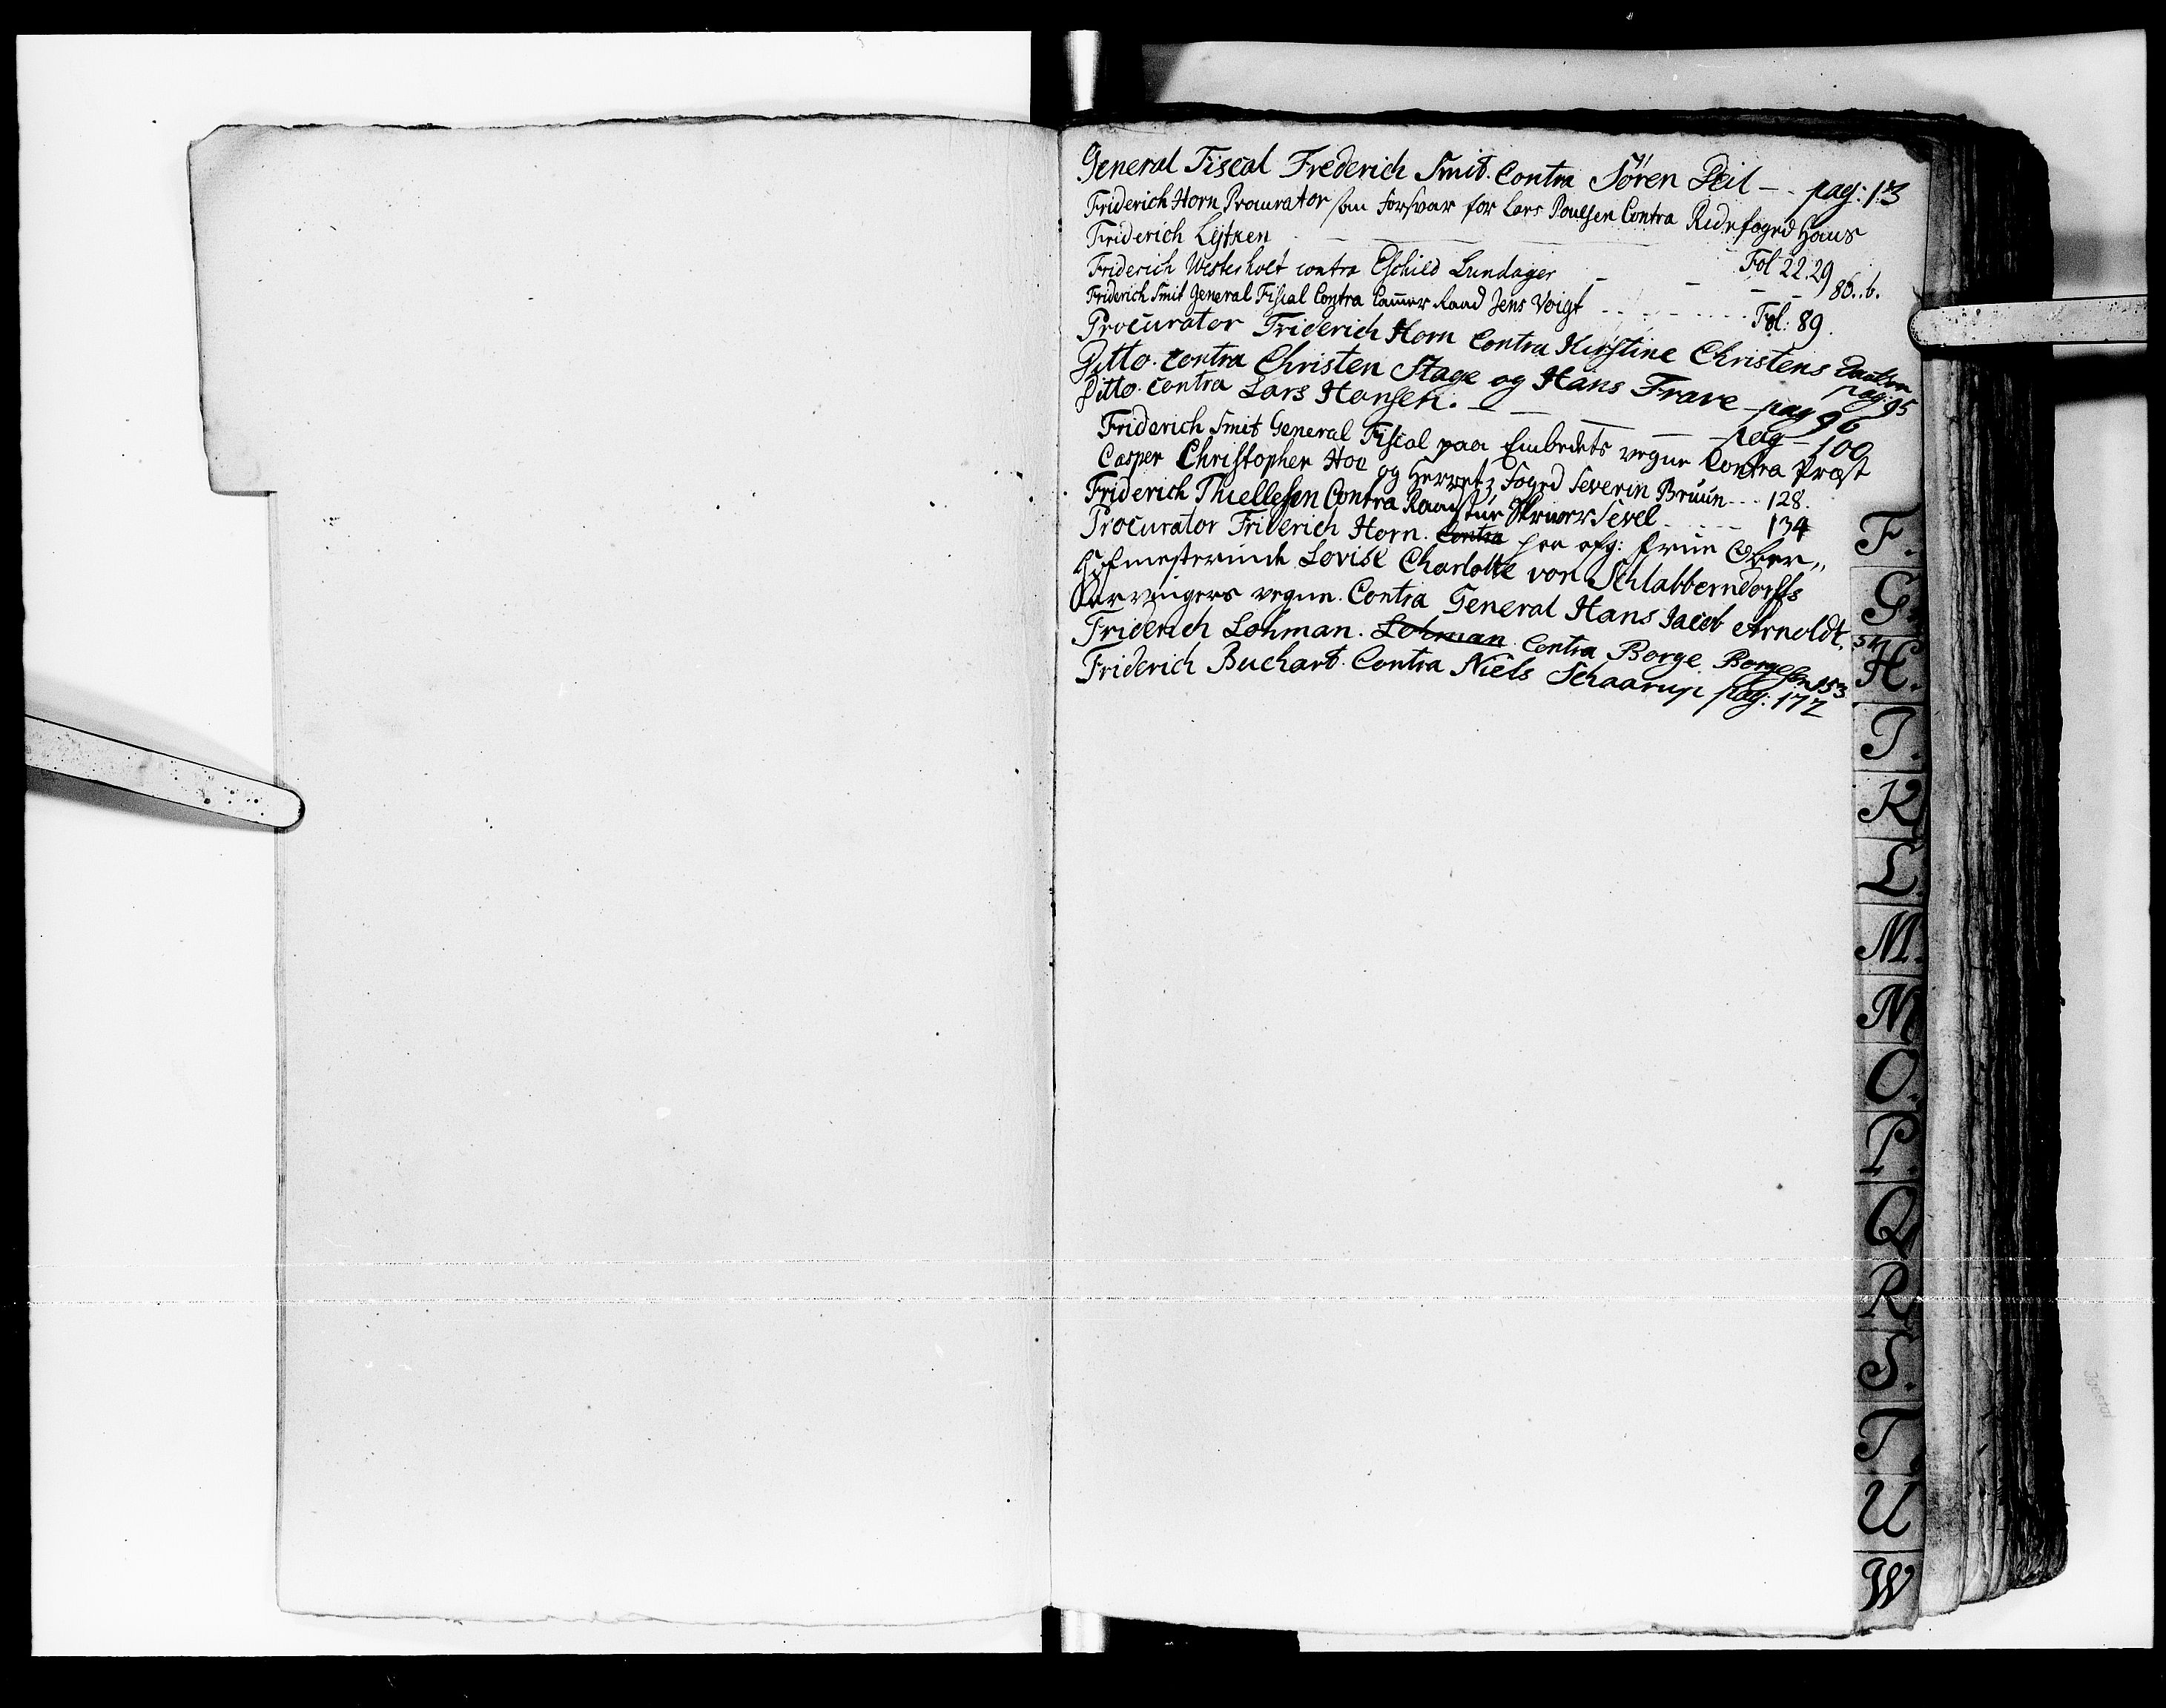 General Fiscal Frederich Smit. Contra Sören Peil - pag: 13
Friderich Horn Procurator som Forsvar for Lars Poulsen Contra Ridefoged Hans
Friderich Lÿtken - - - Fol 22.29
Friderich Westerholt contra Eschild Lundager - - - - 86..b.
Friderich Smit General Fiscal Contra Cammer Raad Jens Voigt - - - - Fol: 89.
Procurator Friderich Horn Contra Kirstine Christens Daatter pag: 95
Ditto. contra Christen Stage og Hans Frare - pag 96
Ditto. contra Lars Hansen. - - - - pag - 100
Friderich Smit General Fiscal paa Embedets vegne Contra Præst
Casper Christopher Hoe og Herretz Foged Severin Bruun - - - 128.
Friderich Thiellesen Contra Raadstue Skriver Sevel - - - - 134
Procurator Friderich Horn. Contra paa afg: Frue Ober„
Hofmesterinde Lovise Charlotte von Schlabberndorffs
Arvingers vegne. Contra General Hans Jacob Arnoldt.
Friderich Lohman. Lohman. Contra Borge Borgesen 153
Friderich Buchart. Contra Niels Schaarup pag: 172
F.
G.
H.
I.
K
L
M.
N
O.
P.
Q
R
S.
T.
U
W